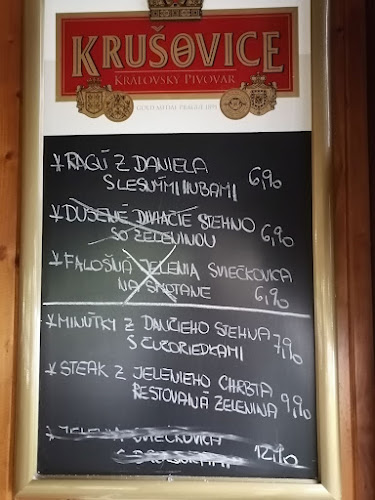 KRUŠOVICE
KRÁLOVSKÝ PIVOVAR
RAGÚ Z DANIELA
S LESNÝMI HUBAMI 6,90
DUSENÉ DIVIAČIE STEHNO
SO ZELENINOU 6,90
FALOŠNÁ JELENIA SVIEČKOVICA
NA SMOTANE 6,90
MINÚTKY Z DANČIEHO STEHNA
S ČUČORIEDKAMI 7,90
STEAK Z JELENIEHO CHRBTA
RESTOVANÁ ZELENINA 9,90
JELENIA SVIEČKOVICA
12,90